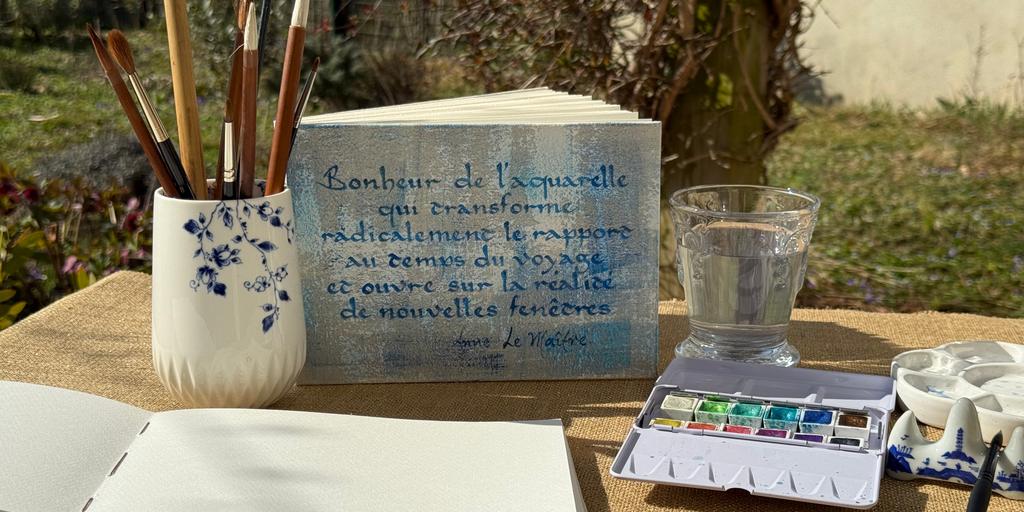 Bonheur de l'aquarelle
qui transforme
radicalement le rapport
au temps du voyage
et ouvre sur la réalité
de nouvelles fenêtres
Anne Le Maître